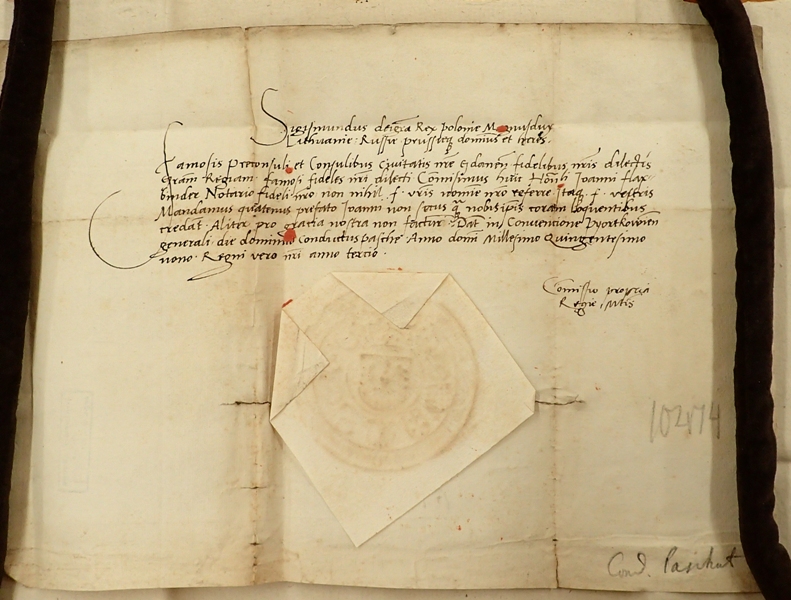 Sigismundus dei grā Rex polonie Magnusdux
Lithuanie Russie prussieqȝ dominus et heres
Famosis Preconsuli et Consulibus Civitatis nrē Gdanēn fidelibus nrīs dilectis
Grām Regiam. Famosi fideles nrī dilecti Comīsimus huic Honli Joanni Flax
binder Notario fideli nrō non nihil f. vrīs nomīe nrō referre Itaqȝ f. vestris
Mandamus quatenus prefato Joanni non secus q̄ nobis ipīs coram loquentibus
credāt Aliter pro gracia nostra non facturi. Dat in Conventione Pyotrkovień
generali die dominico Conductus pasche Anno domī Millesimo Quingentesimo
nono. Regni vero nrī anno tercio.
Comissio propria
Regie Mtis
102474
Cond. Paschat